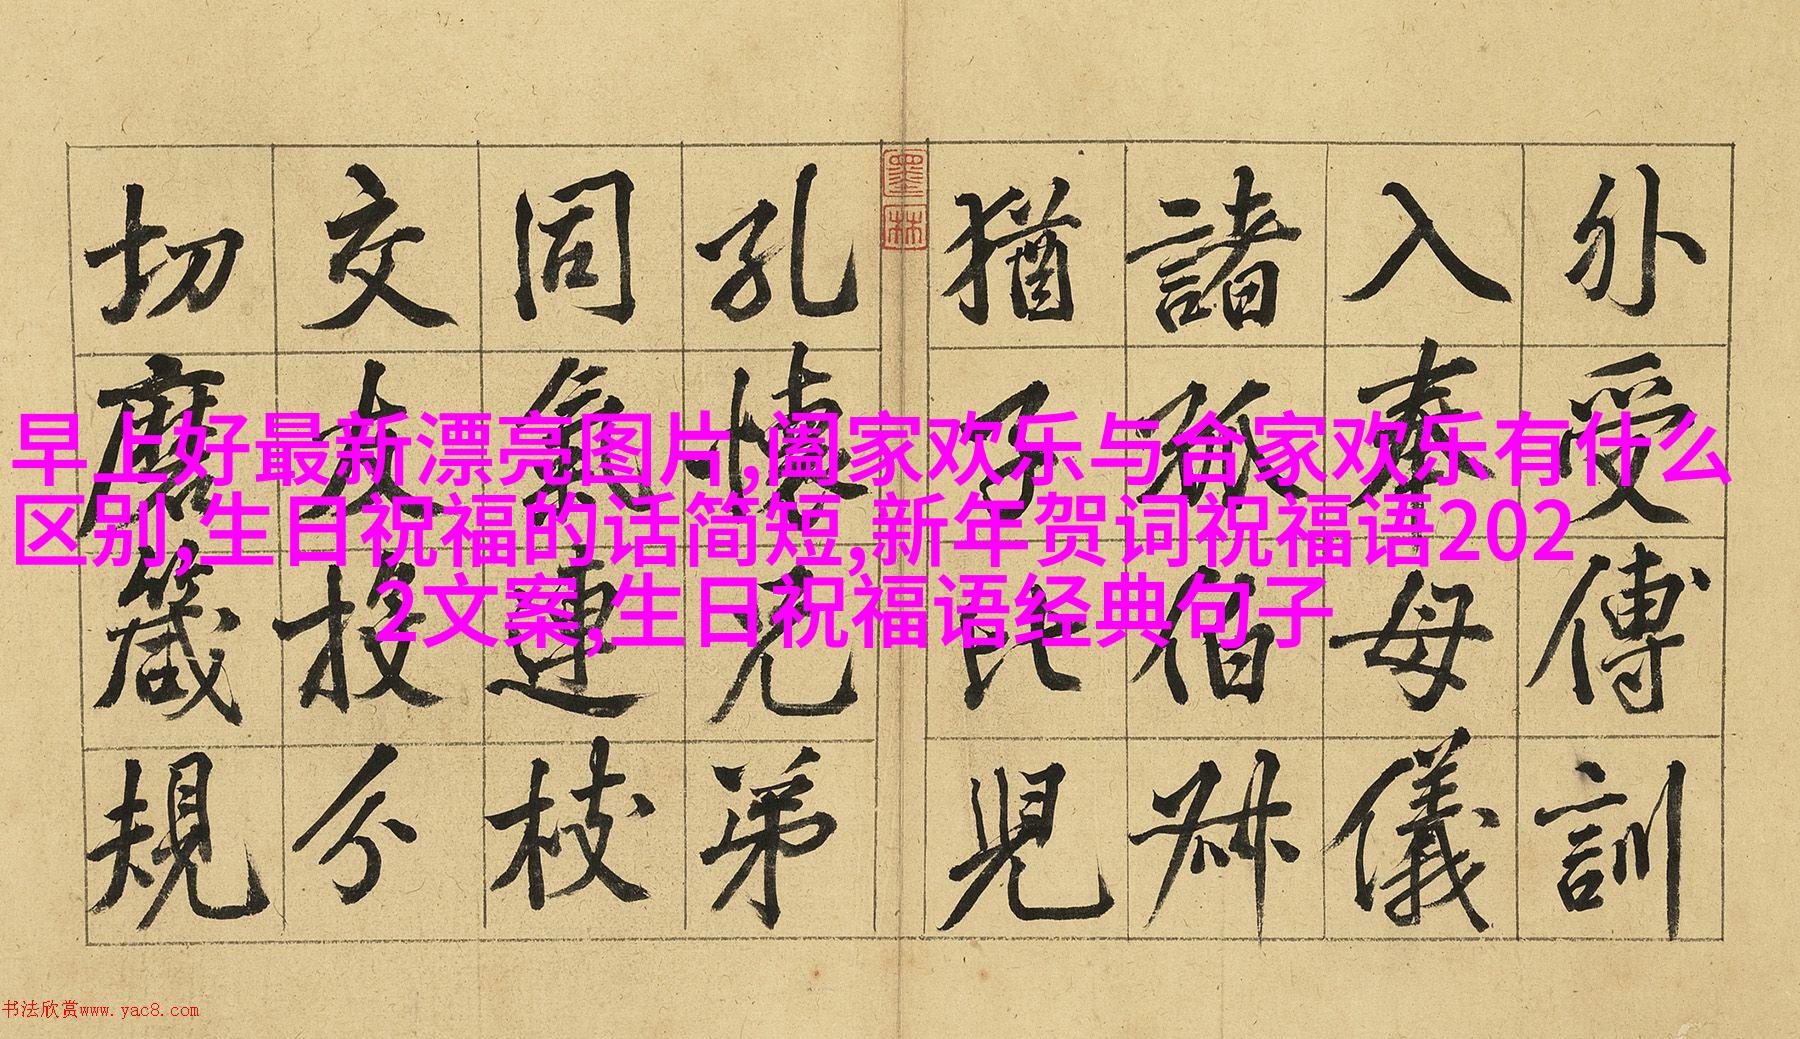 外受傅訓
入奉母儀
諸姑伯叔
猶子比兒
墨林
孔懷兄弟
同氣連枝
交友投分
切磨箴規
早上好最新漂亮图片,阖家欢乐与合家欢乐有什么
区别,生日祝福的话简短,新年贺词祝福语202
2文案,生日祝福语经典句子
书法欣赏www.yac8.com